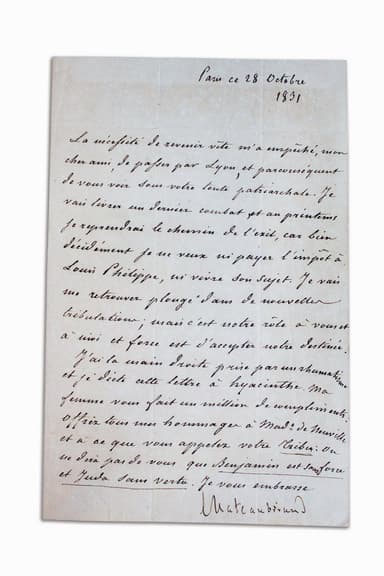 Paris ce 28 Octobre
1831
La nécessité de revenir vite m'a empêché, mon
cher ami, de passer par Lyon, et par conséquent
de vous voir sous votre tente patriarchale. Je
vais livrer un dernier combat et au printems
je reprendrai le chemin de l'exil, car bien
décidément je ne veux ni payer l'impôt à
Louis Philippe, ni vivre son sujet. Je vais
me retrouver plongé dans de nouvelles
tribulations; mais c'est notre rôle à vous et
à moi et force est d'accepter notre destinée.
J'ai la main droite prise par un rhumatisme
et je dicte cette lettre à hyacinthe. Ma
femme vous fait un million de complimens.
Offrez tous mes hommages à Made. de Neuville
et à ce que vous appelez votre Tribu: on
ne dira pas de vous que Benjamin est sans force
et Juda sans vertu. Je vous embrasse
Chateaubriand